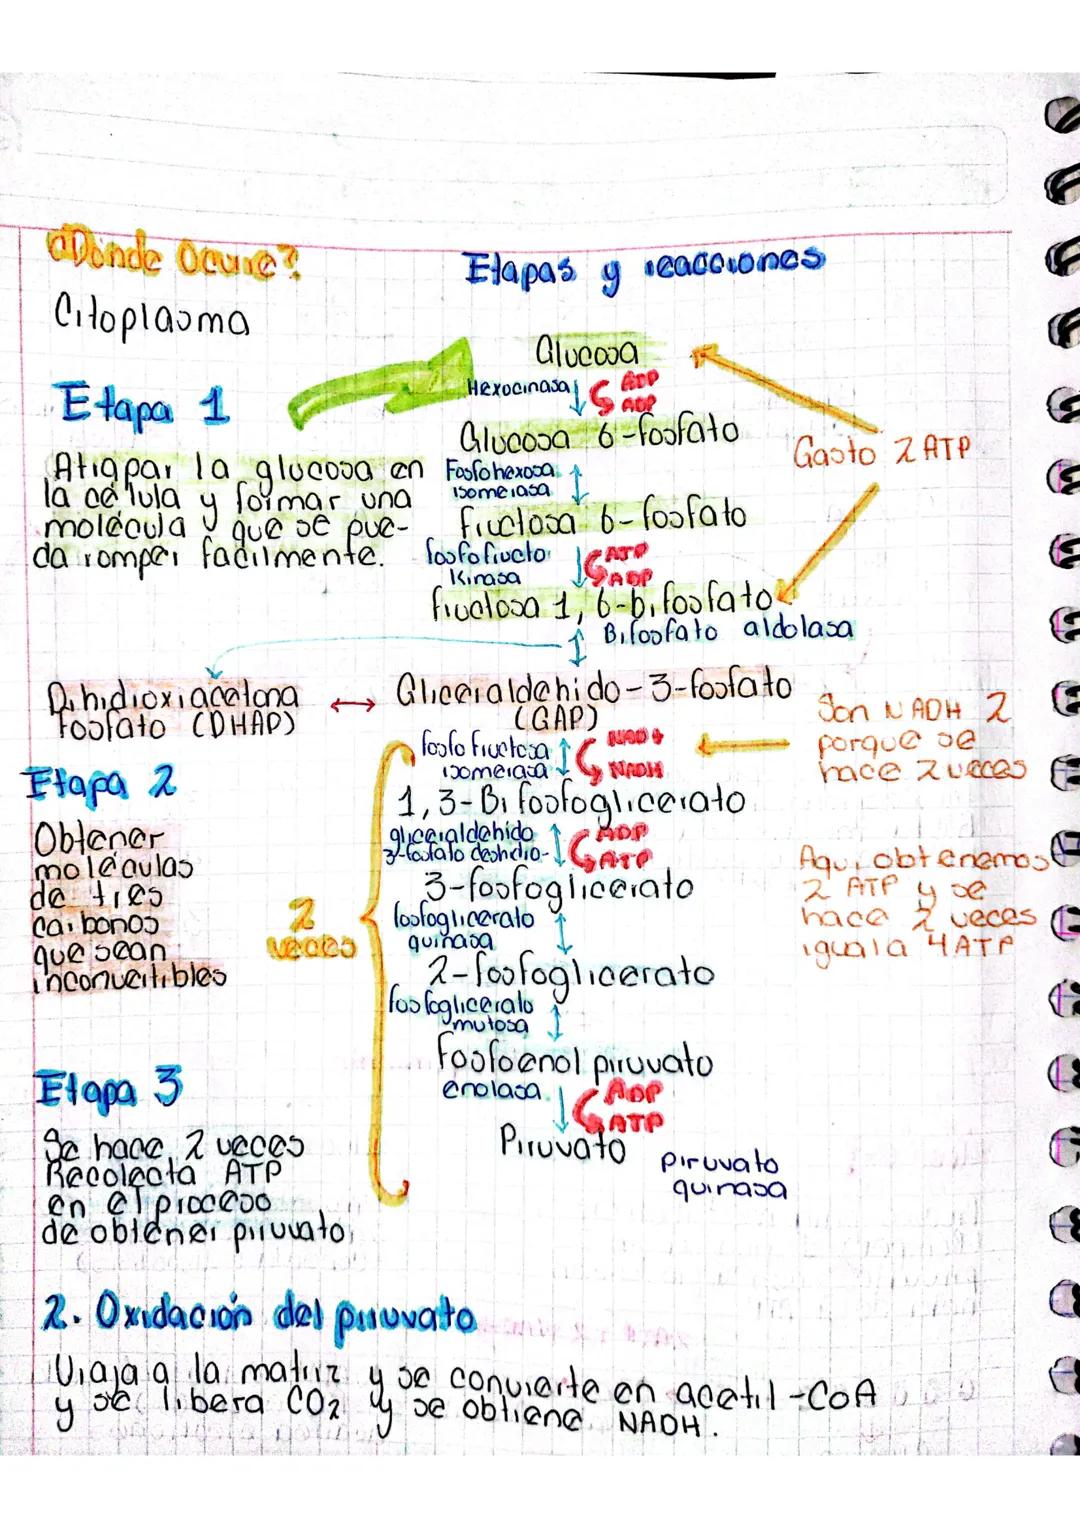 ¿Dónde Ocurre?
Citoplasma
Etapas y reacciones
Etapa 1
Atrapar la glucosa en
la célula y formar una
molécula y que se pue-
da romper facilmente.
Glucosa
Hexocinasa
ADP
ADP
Glucosa 6-fosfato
Fosfohexosa
isomerasa
fructosa 6-fosfato
fosfofructo
Kinasa
ATP
ADP
fructosa 1,6-bifosfato
Bifosfato aldolasa
Gasto 2 ATP
Dihidroxiacetona
fosfato (DHAP)
Gliceraldehido-3-fosfato
(GAP)
fosfo fructosa
isomerasa
NAD+
NADH
Son NADH 2
porque se
hace 2 veces
Etapa 2
Obtener
moléculas
de tres
carbonos
que sean
inconvertibles
2
veces
1,3-Bifosfoglicerato
gliceraldehido
3-fosfato deshidro-
ADP
ATP
3-fosfoglicerato
fosfoglicerato
quinasa
2-fosfoglicerato
fosfoglicerato
mutosa
fosfoenol piruvato
enolasa
ADP
ATP
Piruvato
piruvato
quinasa
Aqui obtenemos
2 ATP y se
hace 2 veces
igual a 4 ATP
Etapa 3
Se hace 2 veces
Recolecta ATP
en el proceso
de obtener piruvato
2. Oxidación del piruvato
Viaja a la matriz y se convierte en acetil-CoA
y se libera CO2 y se obtiene NADH.